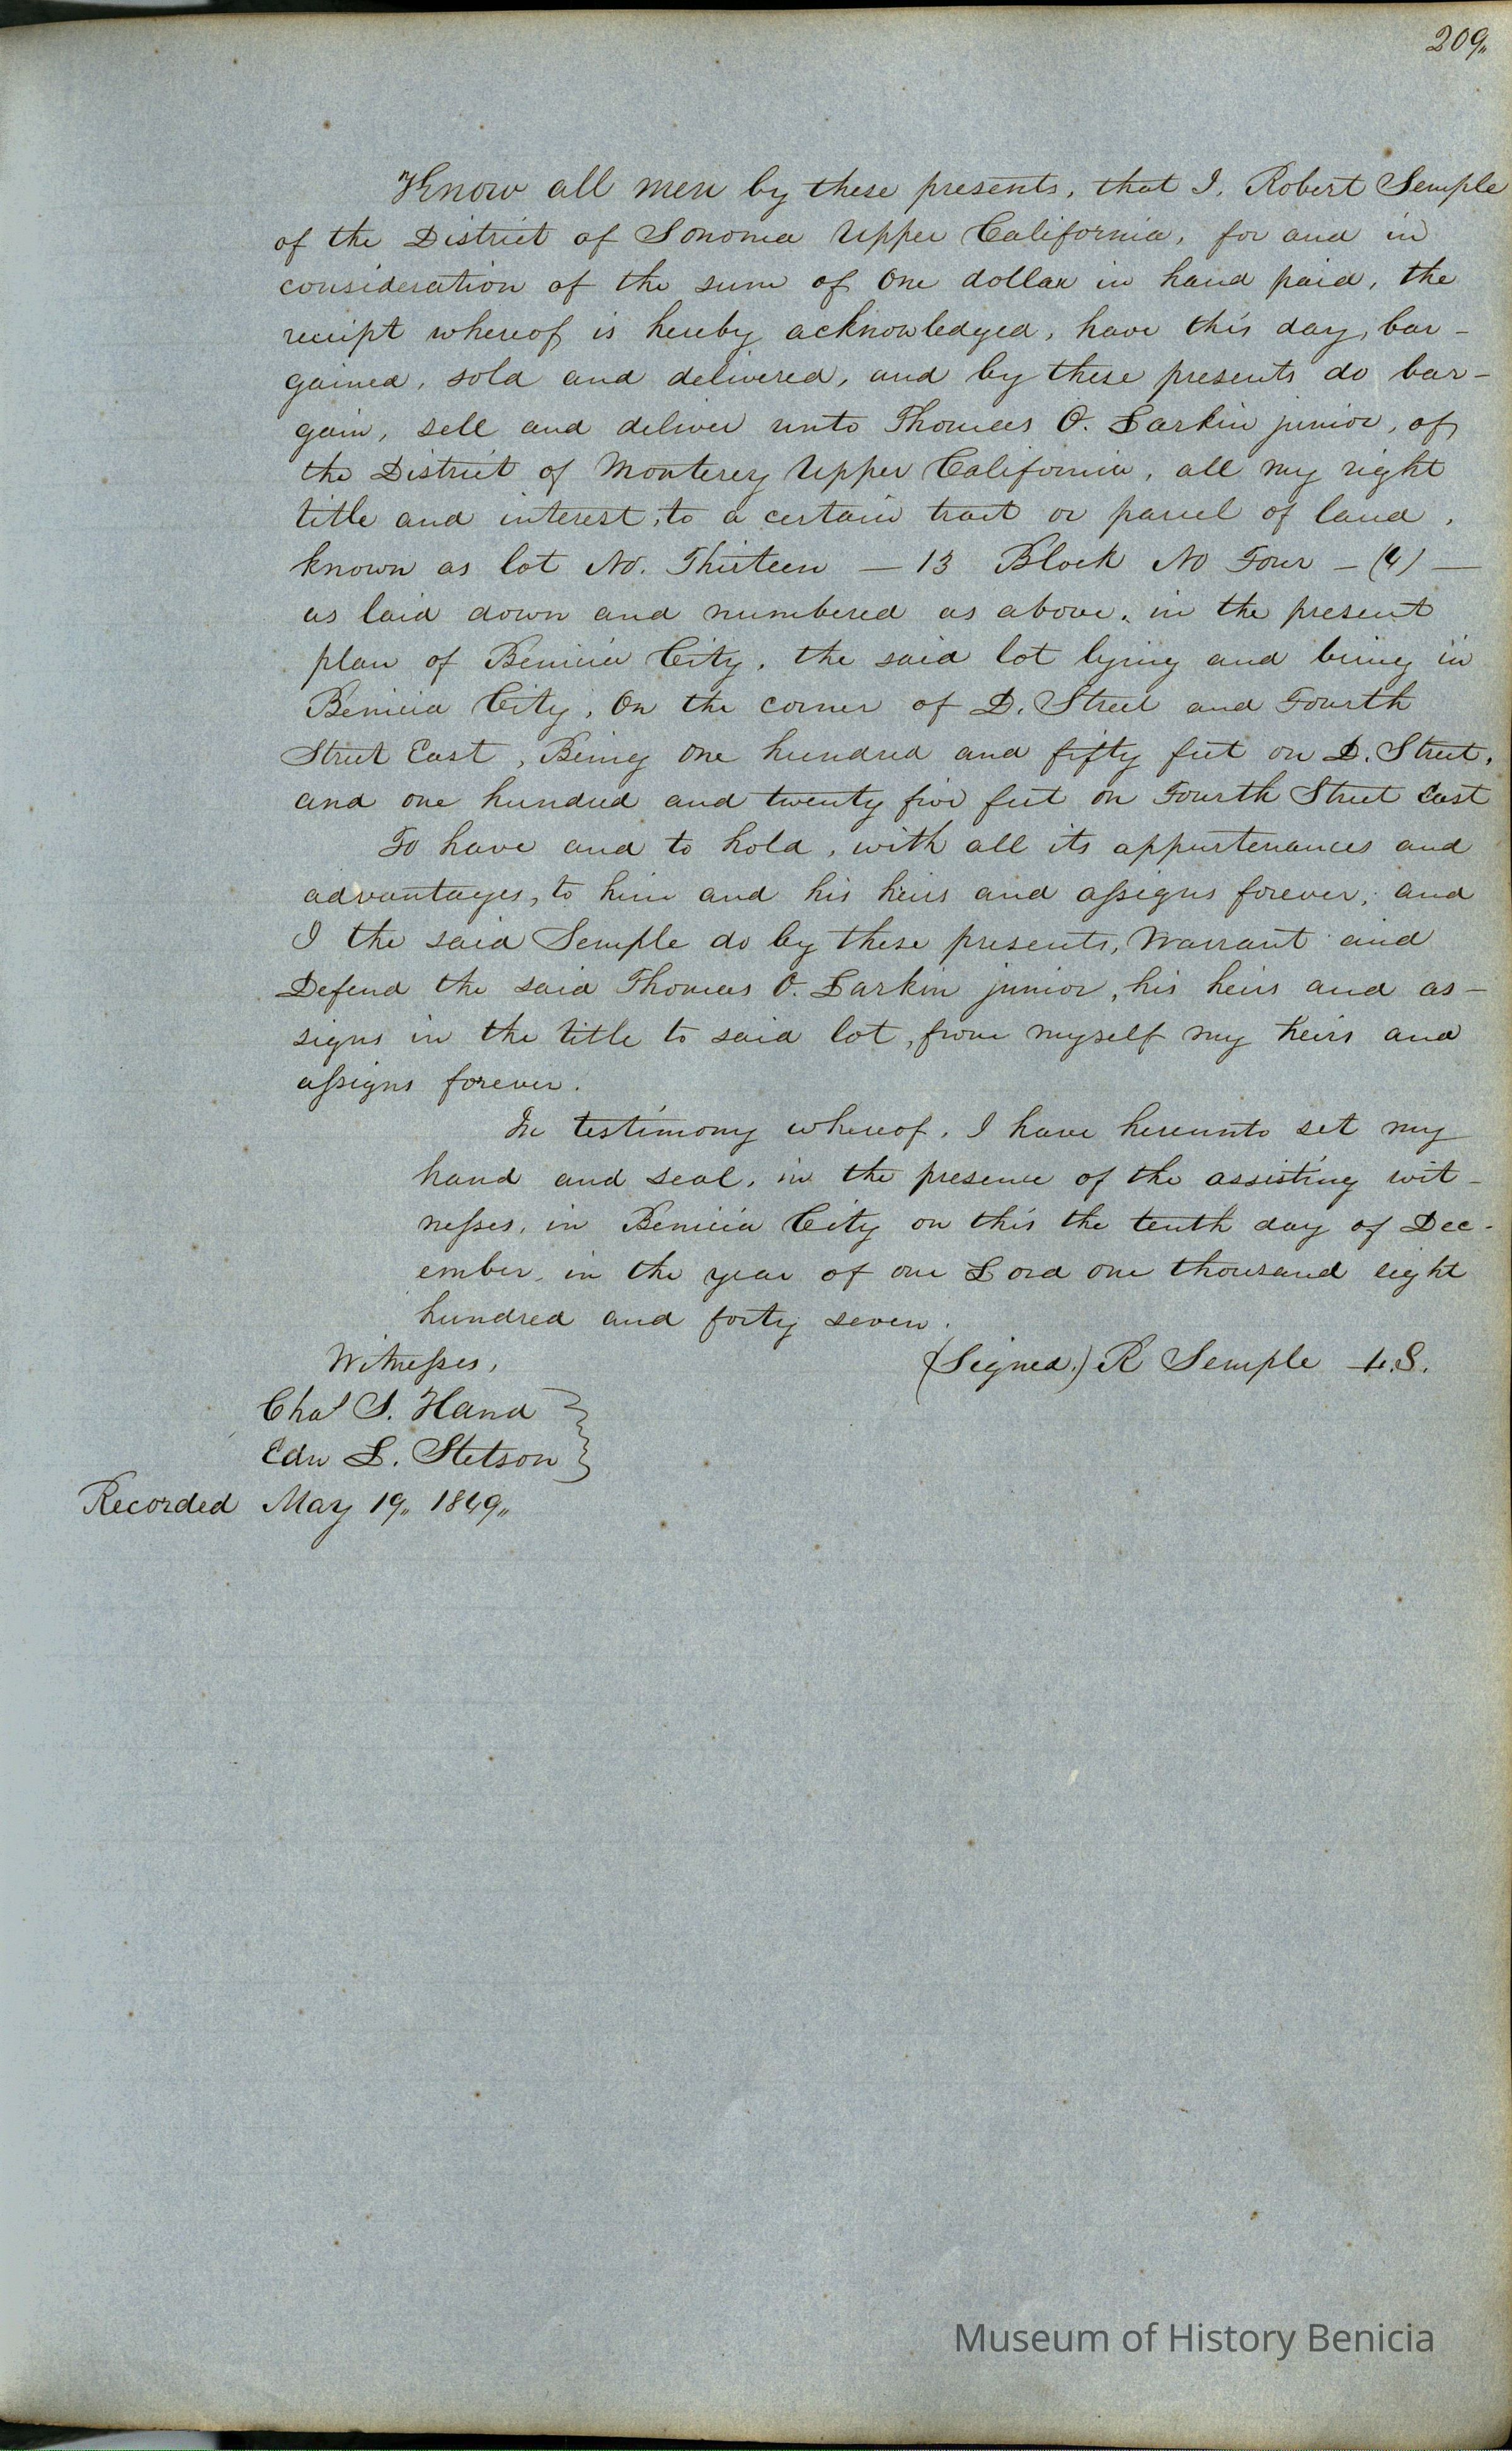 209,,
Know all men by these presents, that I, Robert Semple
of the District of Sonoma Upper California, for and in
consideration of the sum of One dollar in hand paid, the
receipt whereof is hereby acknowledged, have this day, bar-
gained, sold and delivered, and by these presents do bar-
gain, sell and deliver unto Thomas O. Larkin junior, of
the District of Monterey Upper California, all my right
title and interest, to a certain tract or parcel of land,
known as lot No. Thirteen — 13 Block No Four — (4) —
as laid down and numbered as above, in the present
plan of Benicia City, the said lot lying and being in
Benicia City, On the corner of D. Street and Fourth
Street East, Being One hundred and fifty feet on D. Street,
and one hundred and twenty five feet on Fourth Street East
To have and to hold, with all its appurtenances and
advantages, to him and his heirs and assigns forever, and
I the said Semple do by these presents, Warrant and
Defend the said Thomas O. Larkin junior, his heirs and as-
signs in the title to said lot, from myself my heirs and
assigns forever.
In testimony whereof, I have hereunto set my
hand and seal, in the presence of the assisting wit-
nesses, in Benicia City on this the tenth day of Dec-
ember, in the year of our Lord one thousand eight
hundred and forty seven.
Witnesses, (Signed.) R Semple L.S.
Chas S. Hand
Edw L. Stetson
Recorded May 19,, 1849,,
Museum of History Benicia